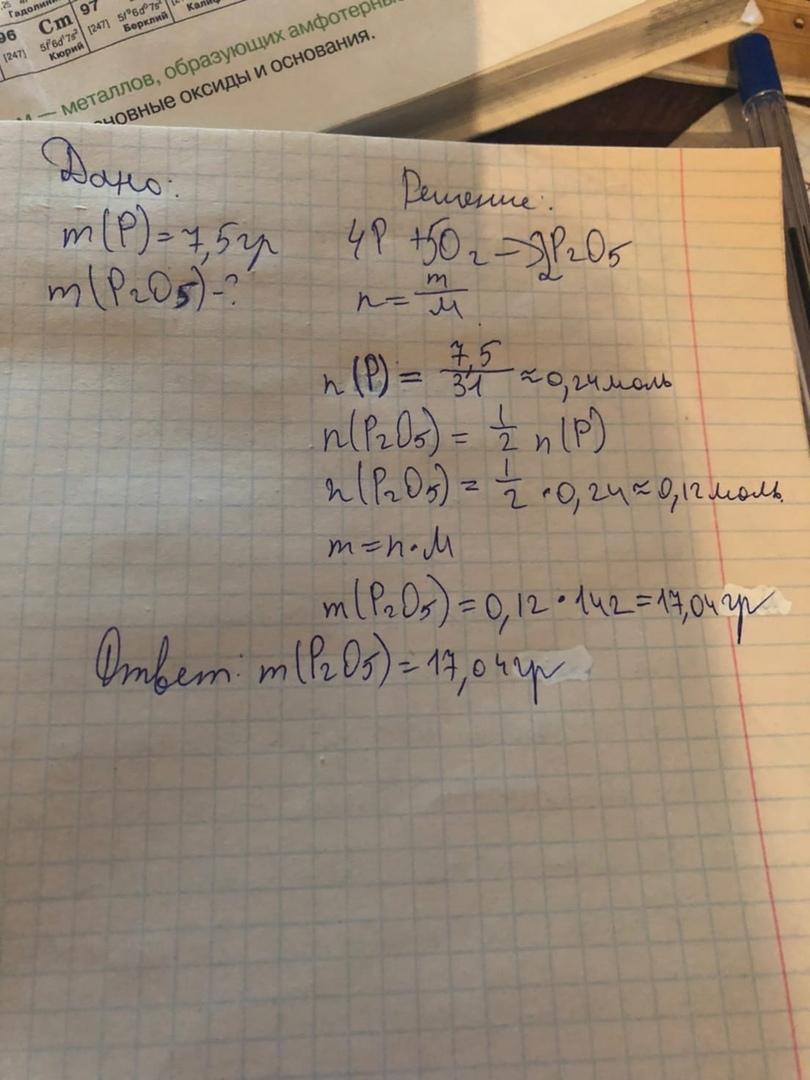 Гадолиний
96 Cm 97
[247] 5f⁷6d¹7s² [247] 5f⁹6d⁰7s²
Кюрий Берклий
металлов, образующих амфотерные
основные оксиды и основания.
Дано: Решение:
m(P)=7,5гр 4P+5O₂→2P₂O₅
m(P₂O₅)-? n=m/M
n(P)=7,5/31≈0,24моль
n(P₂O₅)=1/2 n(P)
n(P₂O₅)=1/2·0,24≈0,12моль
m=n·M
m(P₂O₅)=0,12·142=17,04гр
Ответ: m(P₂O₅)=17,04гр